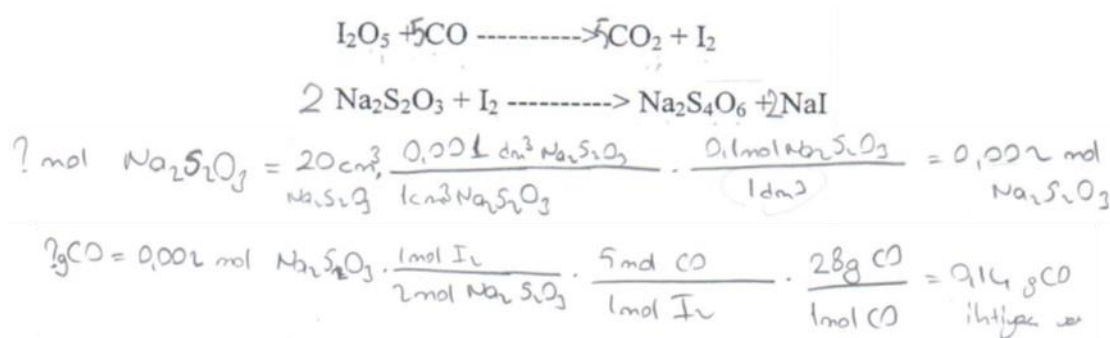 I₂O₅ + 5CO ----------> 5CO₂ + I₂
2 Na₂S₂O₃ + I₂ ----------> Na₂S₄O₆ + 2NaI
? mol Na₂S₂O₃ = 20 cm³ Na₂S₂O₃ · 0,001 dm³ Na₂S₂O₃ / 1cm³ Na₂S₂O₃ · 0,1mol Na₂S₂O₃ / 1dm³ = 0,002 mol Na₂S₂O₃
?gCO = 0,002 mol Na₂S₂O₃ · 1mol I₂ / 2mol Na₂S₂O₃ · 5mol CO / 1mol I₂ · 28g CO / 1mol CO = 0,14 gCO ihtiyaç var